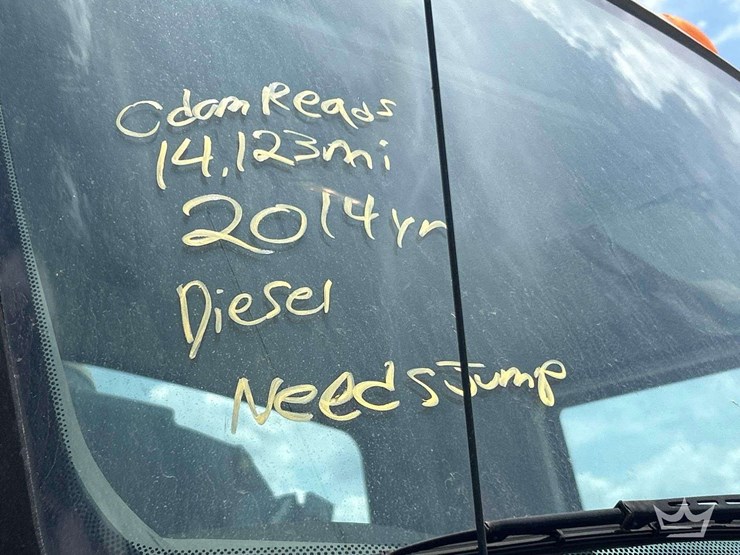 Odom Reads
14,123mi
2014yr
Diesel
Needs Jump